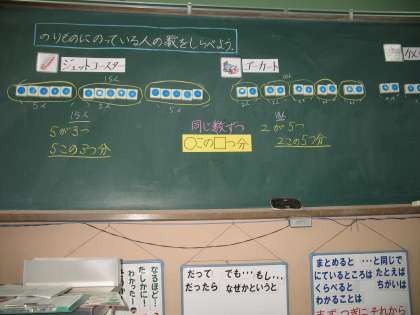 のりものにのっている人の数をしらべよう。
ジェットコースター
15人
5人
5人
5人
15人
5が3つ
5この3つ分
同じ数ずつ
○この□つ分
ゴーカート
10人
2人
2人
2人
2人
2人
10人
2が5つ
2この5つ分
なるほど!
たしかに!
わかった!
だって でも… もし…
だったら なぜかというと
まとめると …と同じで
にているところは たとえば
くらべると ちがいは
わかることは
まず つぎに それから